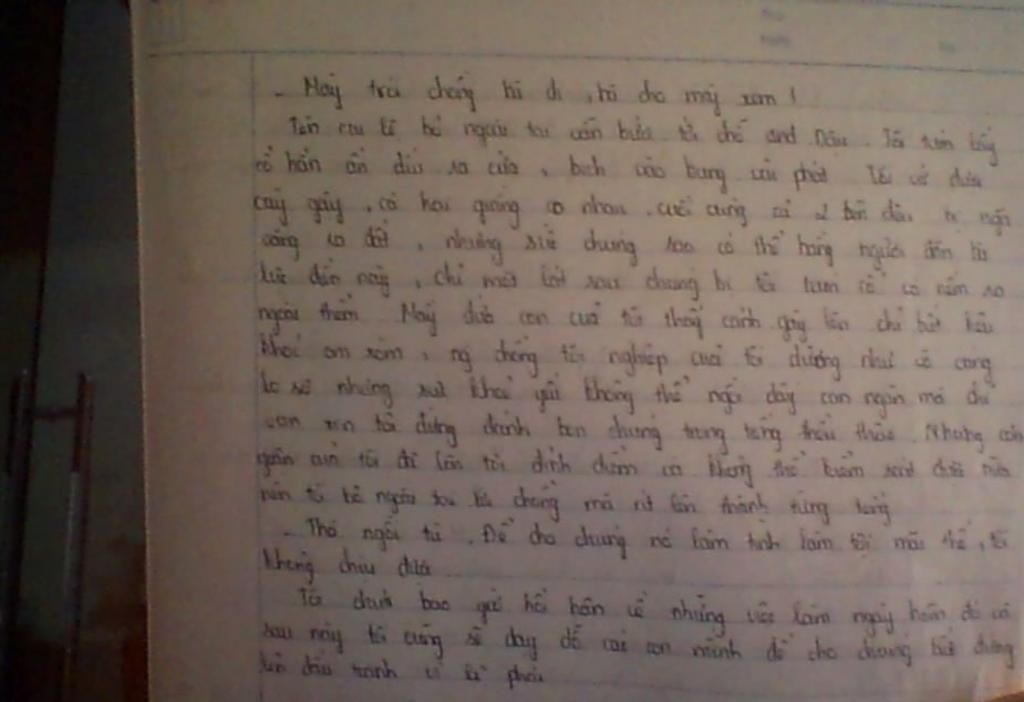 - Mày trói chồng bà đi, bà cho mày xem!
Tên bỏ ngoài tai tôi chế Dậu. Tôi túm lấy
cổ hắn ấn dúi ra cửa, bịch vào bụng Tôi
cây gậy, cả hai giằng co nhau. cuối cùng cả 2 bên đều
ra đất, nhưng sức chúng sao có thể bằng người đàn bà
lực điền này, chỉ một lát sau chúng bị tôi túm cổ nằm ra
ngoài thềm. Mấy đứa con của tôi thấy cảnh gây lộn chỉ biết kêu
khóc om xòm, ng chồng tội nghiệp của tôi dường như vô cùng
lo sợ nhưng sức khoẻ yếu không thể ngồi dậy can ngăn mà chỉ
van xin tôi đừng đánh bọn chúng trong tiếng thều thào. Nhưng cơn
giận của tôi đã lên tới đỉnh điểm và không thể kiểm soát được nữa
nên tôi bỏ ngoài tai chồng mà rít lên thành từng tiếng
- Thà ngồi tù. Để cho chúng nó làm tình làm tội mãi thế, tôi
không chịu được
Tôi chưa bao giờ hối hận về những việc làm ngày hôm đó và
sau này tôi cũng sẽ dạy dỗ các con mình để cho chúng biết đứng
lên đấu tranh vì lẽ phải